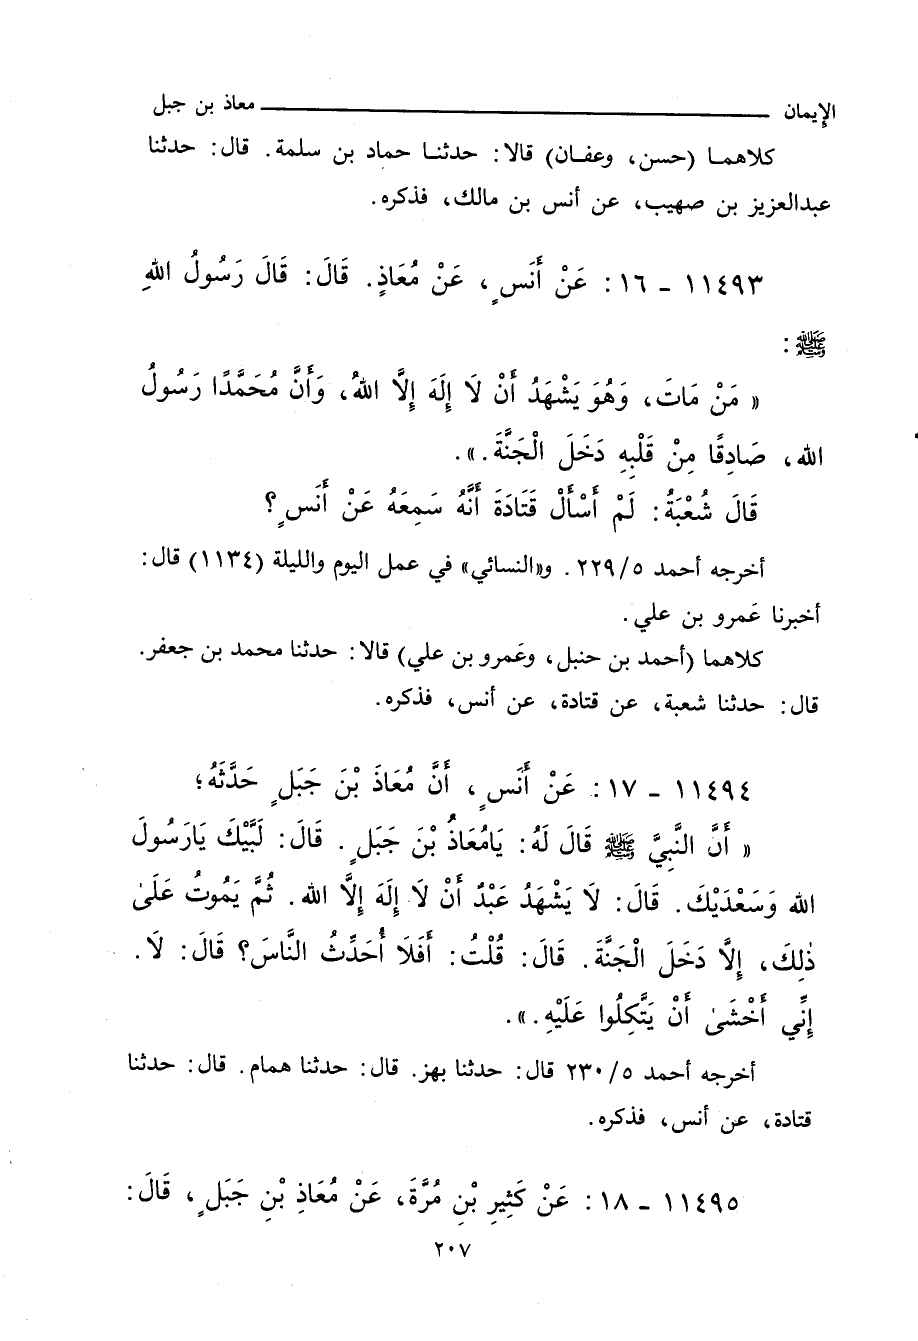 الإيمان معاذ بن جبل
كلاهما (حسن، وعفان) قالا: حدثنا حماد بن سلمة. قال: حدثنا
عبدالعزيز بن صهيب، عن أنس بن مالك، فذكره.
١١٤٩٣ - ١٦: عَنْ أَنَسٍ، عَنْ مُعَاذٍ. قَالَ: قَالَ رَسُولُ اللهِ
ﷺ:
« مَنْ مَاتَ، وَهُوَ يَشْهَدُ أَنْ لَا إِلَهَ إِلَّا اللهُ، وَأَنَّ مُحَمَّدًا رَسُولُ
الله، صَادِقًا مِنْ قَلْبِهِ دَخَلَ الْجَنَّةَ.».
قَالَ شُعْبَةُ: لَمْ أَسْأَلْ قَتَادَةَ أَنَّهُ سَمِعَهُ عَنْ أَنَسٍ؟
أخرجه أحمد ٢٢٩/٥. و«النسائي» في عمل اليوم والليلة (١١٣٤) قال:
أخبرنا عَمرو بن علي.
كلاهما (أحمد بن حنبل، وعَمرو بن علي) قالا: حدثنا محمد بن جعفر.
قال: حدثنا شعبة، عن قتادة، عن أنس، فذكره.
١١٤٩٤ - ١٧: عَنْ أَنَسٍ، أَنَّ مُعَاذَ بْنَ جَبَلٍ حَدَّثَهُ؛
« أَنَّ النَّبِيَّ ﷺ قَالَ لَهُ: يَامُعَاذُ بْنَ جَبَلٍ. قَالَ: لَبَّيْكَ يَارَسُولَ
الله وَسَعْدَيْكَ. قَالَ: لَا يَشْهَدُ عَبْدٌ أَنْ لَا إِلَهَ إِلَّا الله. ثُمَّ يَمُوتُ عَلَىٰ
ذٰلِكَ، إِلَّا دَخَلَ الْجَنَّةَ. قَالَ: قُلْتُ: أَفَلَا أُحَدِّثُ النَّاسَ؟ قَالَ: لَا.
إِنِّي أَخْشَىٰ أَنْ يَتَّكِلُوا عَلَيْهِ.».
أخرجه أحمد ٢٣٠/٥ قال: حدثنا بهز. قال: حدثنا همام. قال: حدثنا
قتادة، عن أنس، فذكره.
١١٤٩٥ - ١٨: عَنْ كَثِيرِ بْنِ مُرَّةَ، عَنْ مُعَاذِ بْنِ جَبَلٍ، قَالَ:
٢٠٧